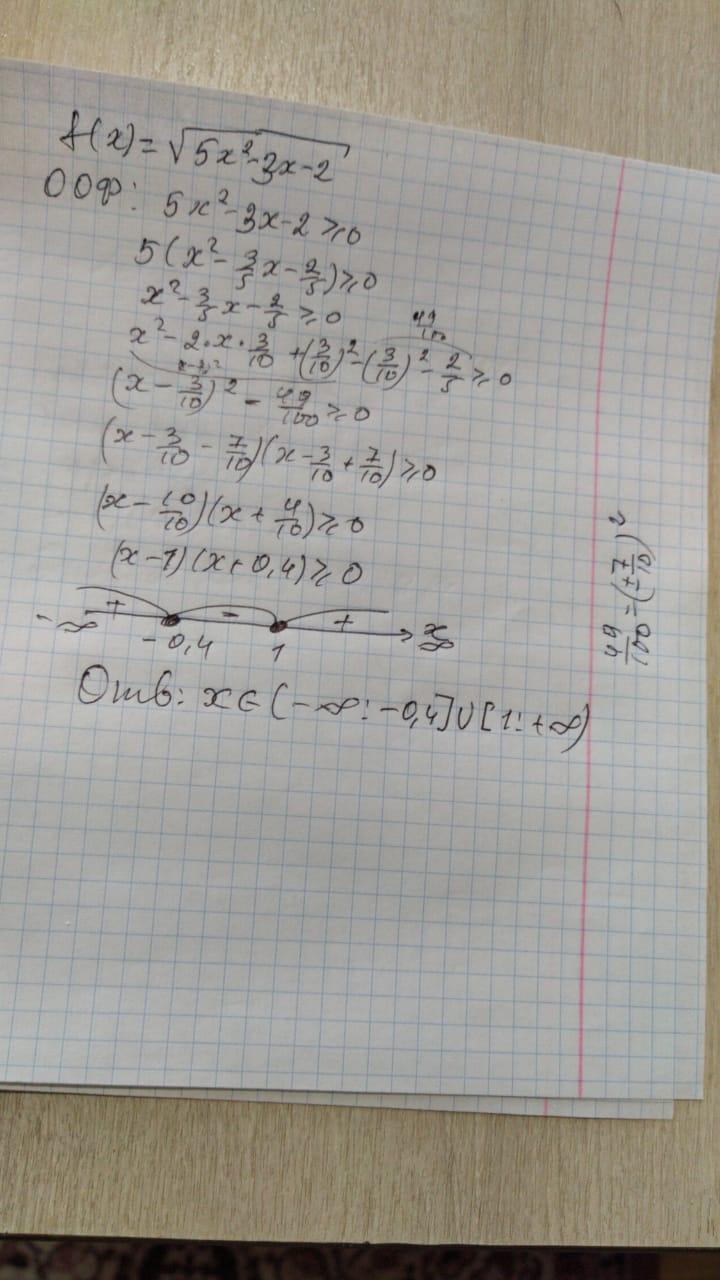 f(x)=√5x²-3x-2
ООФ: 5x²-3x-2≥0
5(x²-3/5x-2/5)≥0
x²-3/5x-2/5≥0
49/100
x²-2·x·3/10+(3/10)²-(3/10)²-2/5≥0
(x-3/10)²-49/100≥0
(x-3/10-7/10)(x-3/10+7/10)≥0
(x-10/10)(x+4/10)≥0
(x-1)(x+0,4)≥0
-∞ + - + ∞
-0,4 1
Отв: x∈(-∞;-0,4]∪[1;+∞)
49/100=(±7/10)²